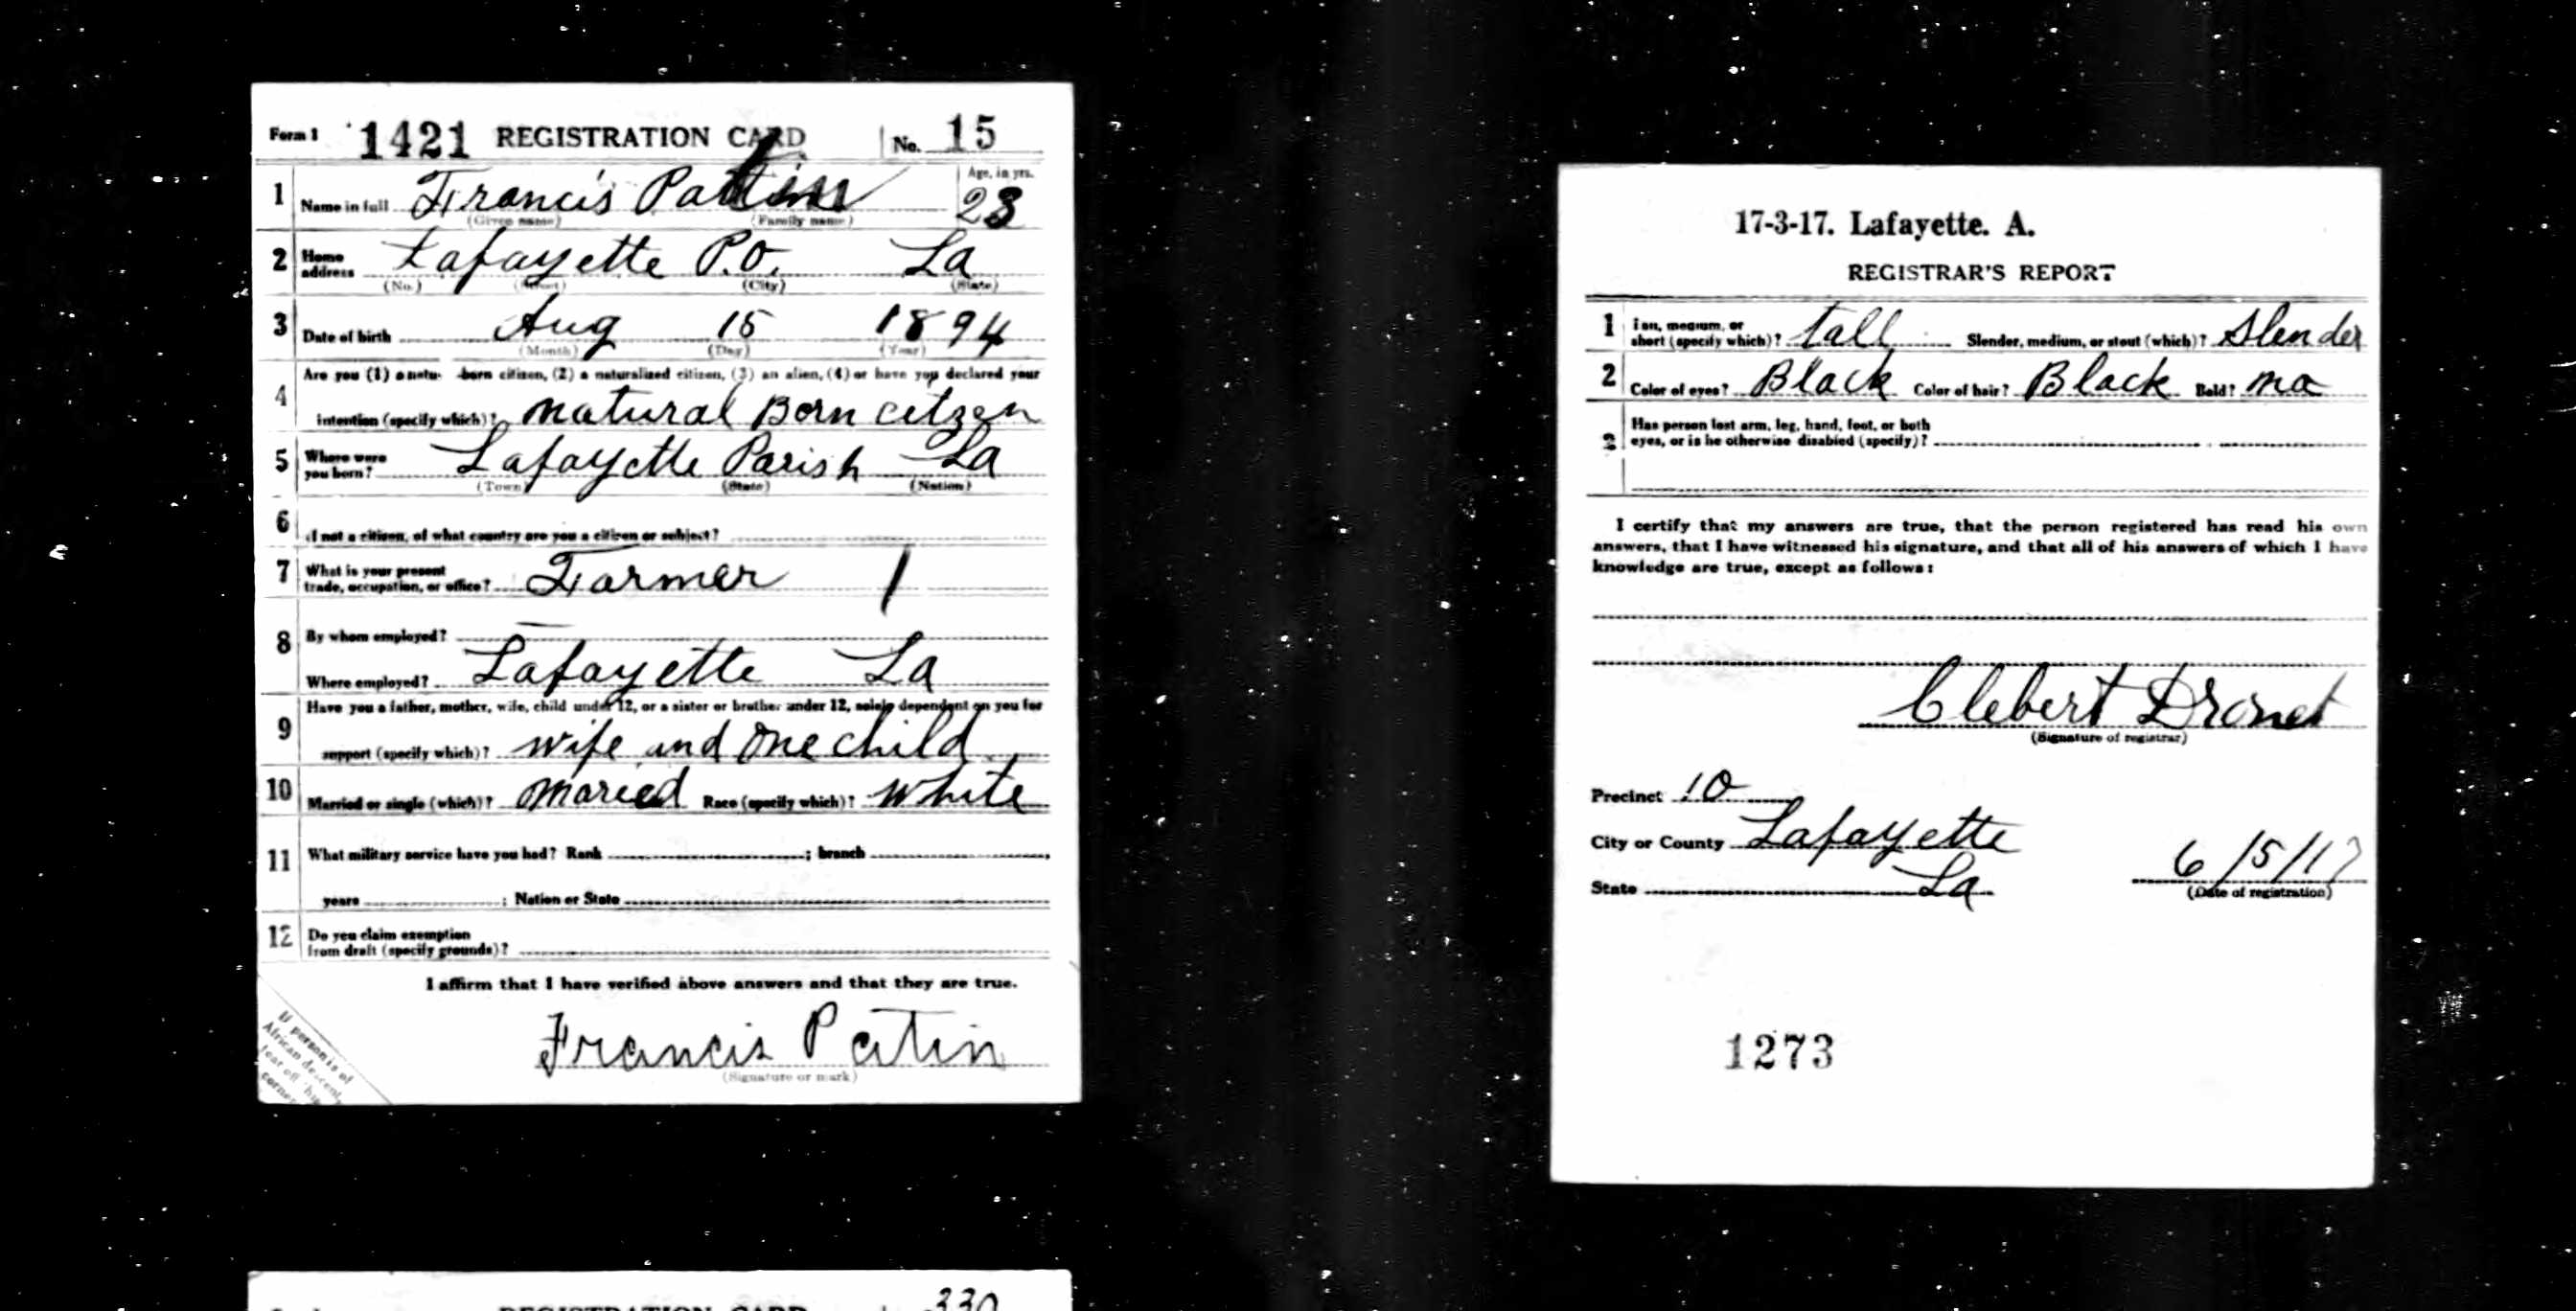 Form 1 1421 REGISTRATION CARD No. 15
1 Name in full Francis Patin Age, in yrs. 23
(Given name) (Family name)
2 Home address Lafayette P.O. La
(No.) (Street) (City) (State)
3 Date of birth Aug 15 1894
(Month) (Day) (Year)
4 Are you (1) a natu- -born citizen, (2) a naturalized citizen, (3) an alien, (4) or have you declared your
intention (specify which)? natural Born citzen
5 Where were you born? Lafayette Parish La
(Town) (State) (Nation)
6 If not a citizen, of what country are you a citizen or subject?
7 What is your present trade, occupation, or office? Farmer 1
8 By whom employed?
Where employed? Lafayette La
9 Have you a father, mother, wife, child under 12, or a sister or brother under 12, solely dependent on you for
support (specify which)? wife and one child
10 Married or single (which)? maried Race (specify which)? white
11 What military service have you had? Rank ; branch
years ; Nation or State
12 Do you claim exemption
from draft (specify grounds)?
I affirm that I have verified above answers and that they are true.
Francis Patin
(Signature or mark)
If person is of
African descent,
tear off this
corner
REGISTRATION CARD 330
17-3-17. Lafayette. A.
REGISTRAR'S REPORT
1 Tall, medium, or
short (specify which)? tall Slender, medium, or stout (which)? Slender
2 Color of eyes? Black Color of hair? Black Bald? no
3 Has person lost arm, leg, hand, foot, or both
eyes, or is he otherwise disabled (specify)?
I certify that my answers are true, that the person registered has read his own
answers, that I have witnessed his signature, and that all of his answers of which I have
knowledge are true, except as follows:
Clebert Dronet
(Signature of registrar)
Precinct 10
City or County Lafayette
State La 6/5/17
(Date of registration)
1273